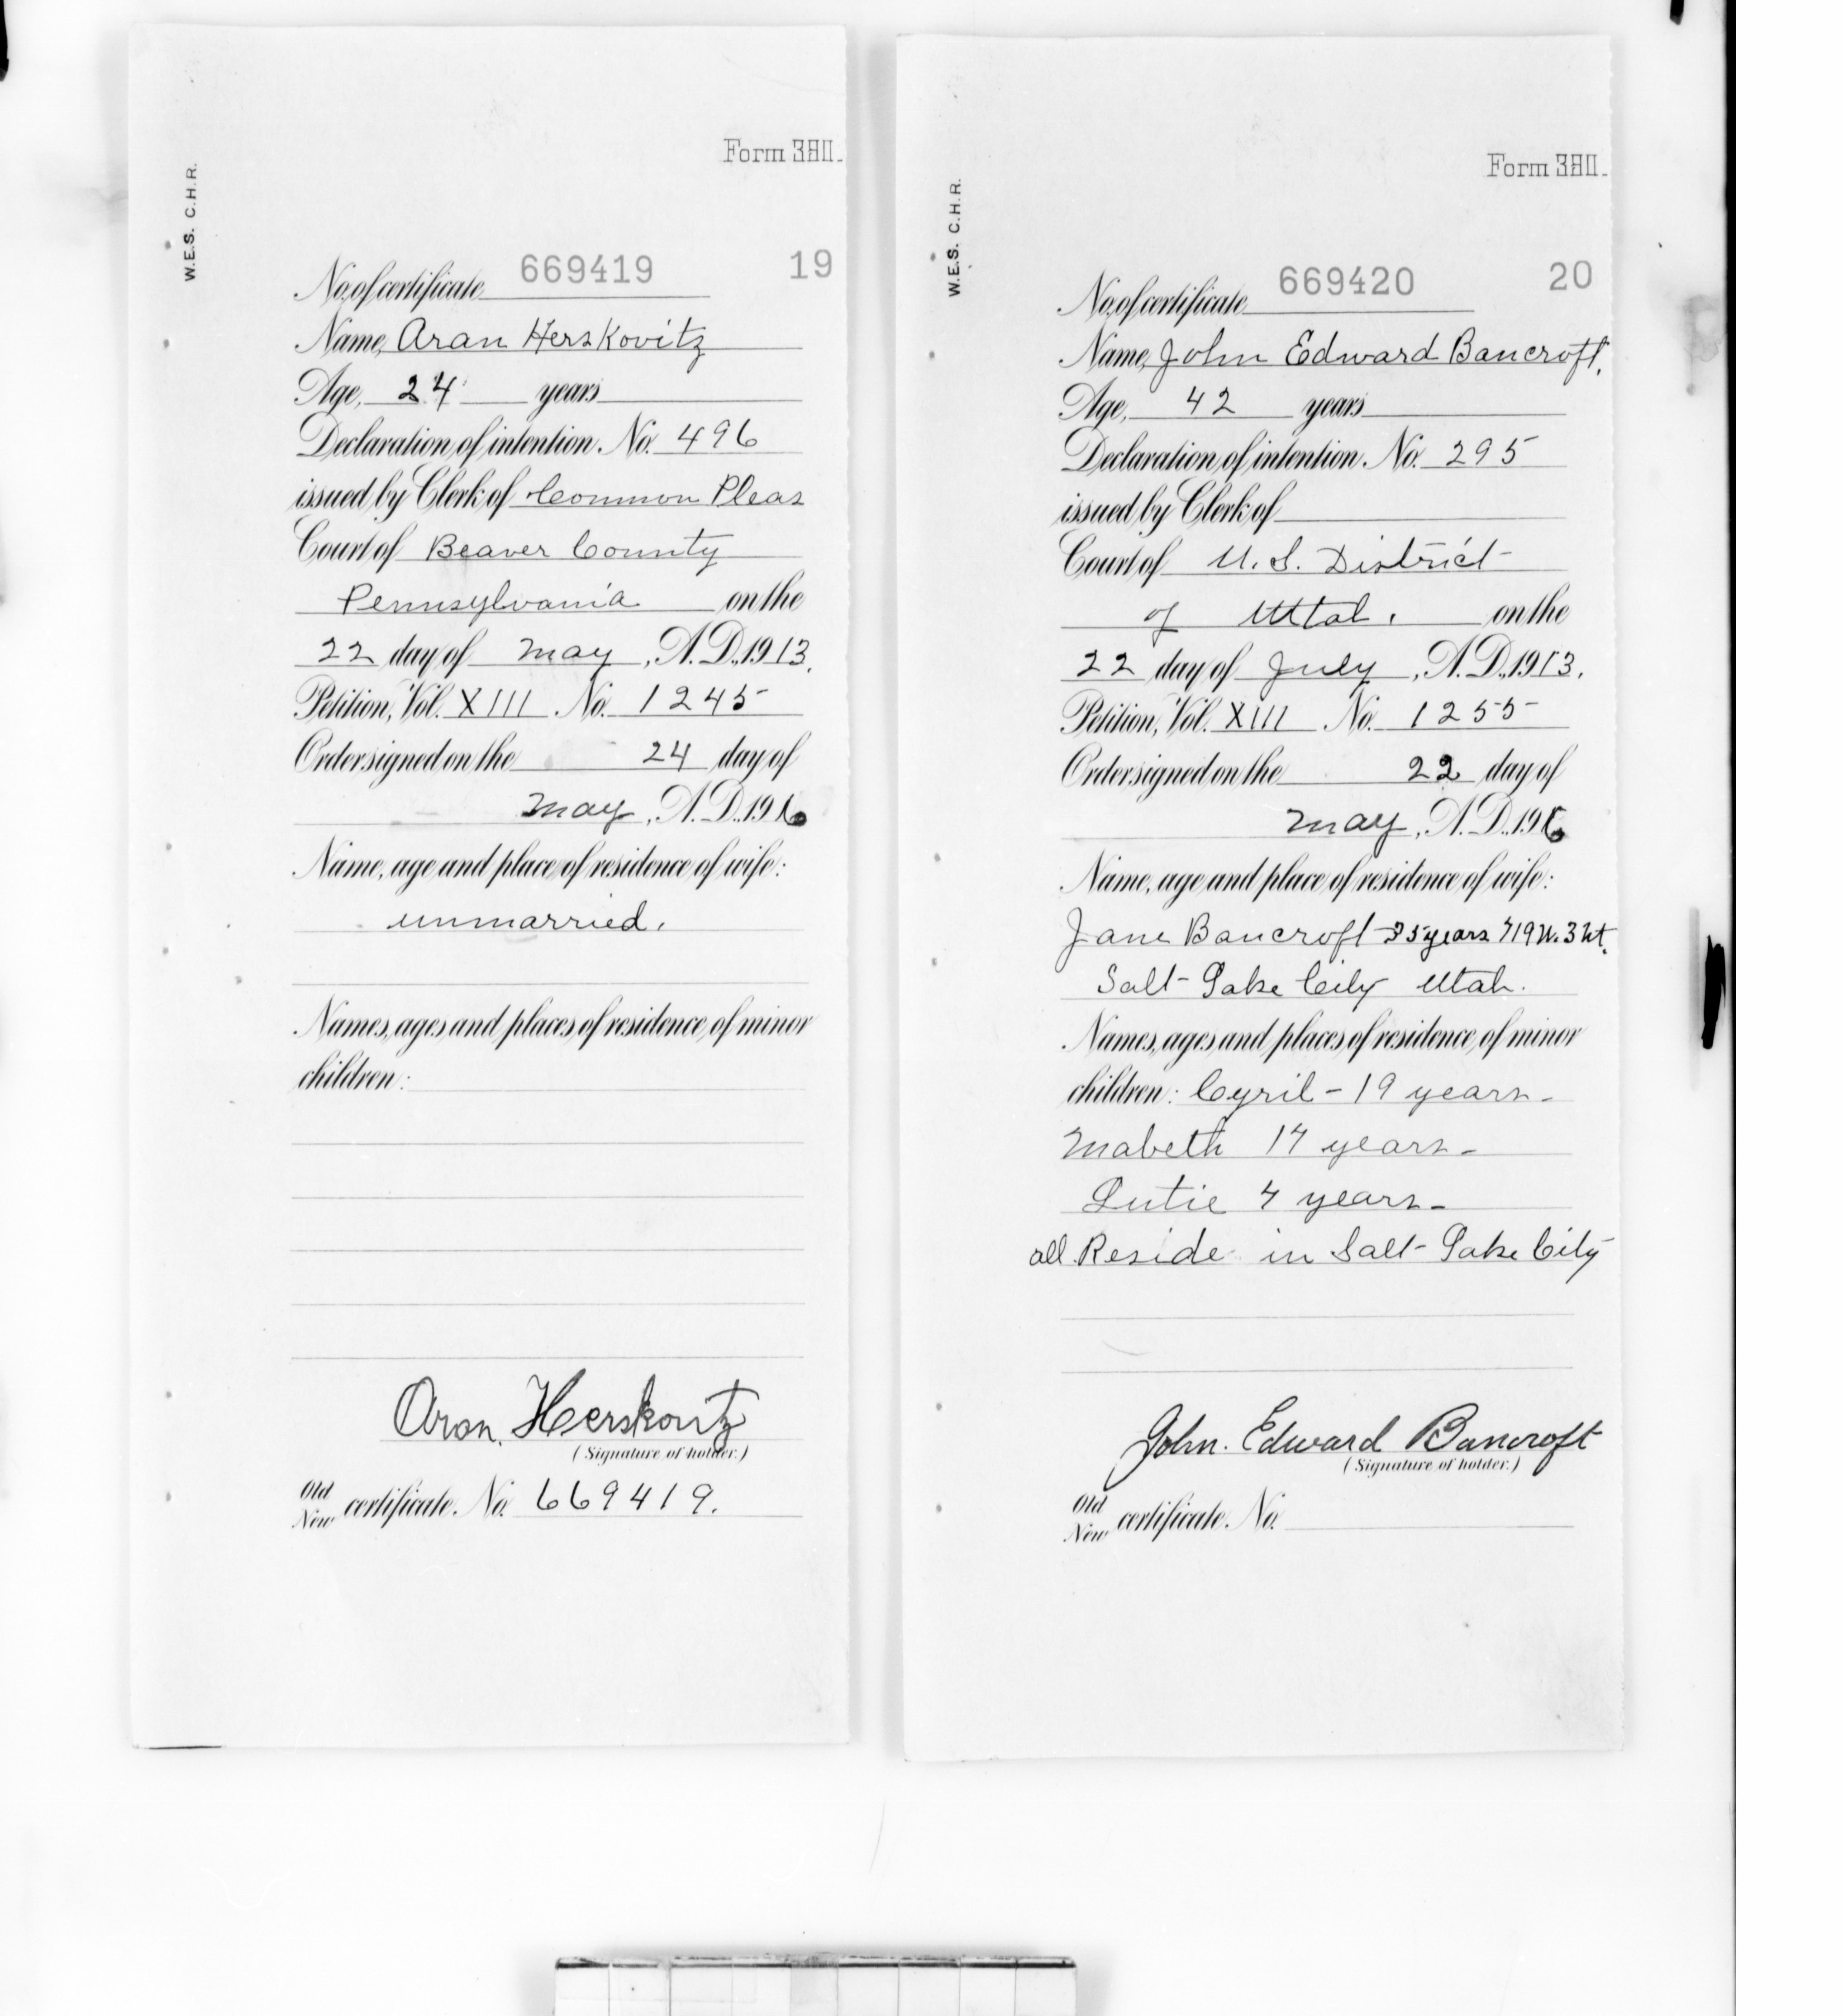 W.E.S. C.H.R.
Form 380.
No. of certificate 669419 19
Name, Aran Herskovitz
Age, 24 years
Declaration of intention. No. 496
issued by Clerk of Common Pleas
Court of Beaver County
Pennsylvania on the
22 day of May, A.D. 1913.
Petition, Vol. XIII No. 1245
Order signed on the 24 day of
May, A.D. 1916
Name, age and place of residence of wife:
unmarried.
Names, ages and places of residence of minor
children:
Aron. Herskovitz
(Signature of holder.)
Old
New certificate. No. 669419.
W.E.S. C.H.R.
Form 380.
No. of certificate 669420 20
Name, John Edward Bancroft.
Age, 42 years
Declaration of intention. No. 295
issued by Clerk of
Court of U.S. District
of Utah. on the
22 day of July, A.D. 1913.
Petition, Vol. XIII No. 1255
Order signed on the 22 day of
May, A.D. 1916
Name, age and place of residence of wife:
Jane Bancroft 35 years 719 N. 3 W.
Salt Lake City Utah.
Names, ages and places of residence of minor
children: Cyril - 19 years -
Mabeth 17 years -
Lutie 7 years -
all Reside in Salt Lake City
John. Edward Bancroft
(Signature of holder.)
Old
New certificate. No.